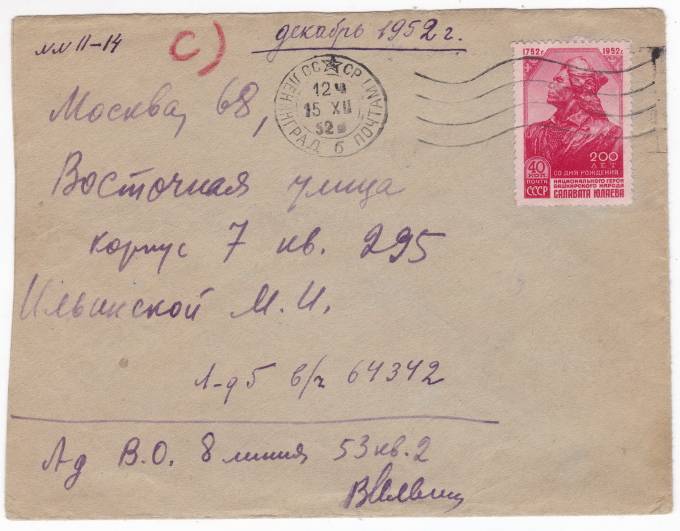 декабрь 1952 г.
мм 11-14
С)
ЛЕНИНГРАД ПОЧТАМТ
СССР
12Ч
15 XII
52
6
1752 г. 1952 г.
200
ЛЕТ
СО ДНЯ РОЖДЕНИЯ
НАЦИОНАЛЬНОГО ГЕРОЯ
БАШКИРСКОГО НАРОДА
САЛАВАТА ЮЛАЕВА
40 КОП.
ПОЧТА
СССР
Москва, 68,
Восточная улица
корпус 7 кв. 295
Ильинской М. И.
Л-д 5 в/ч 64342
Л-д В.О. 8 линия 53 кв. 2